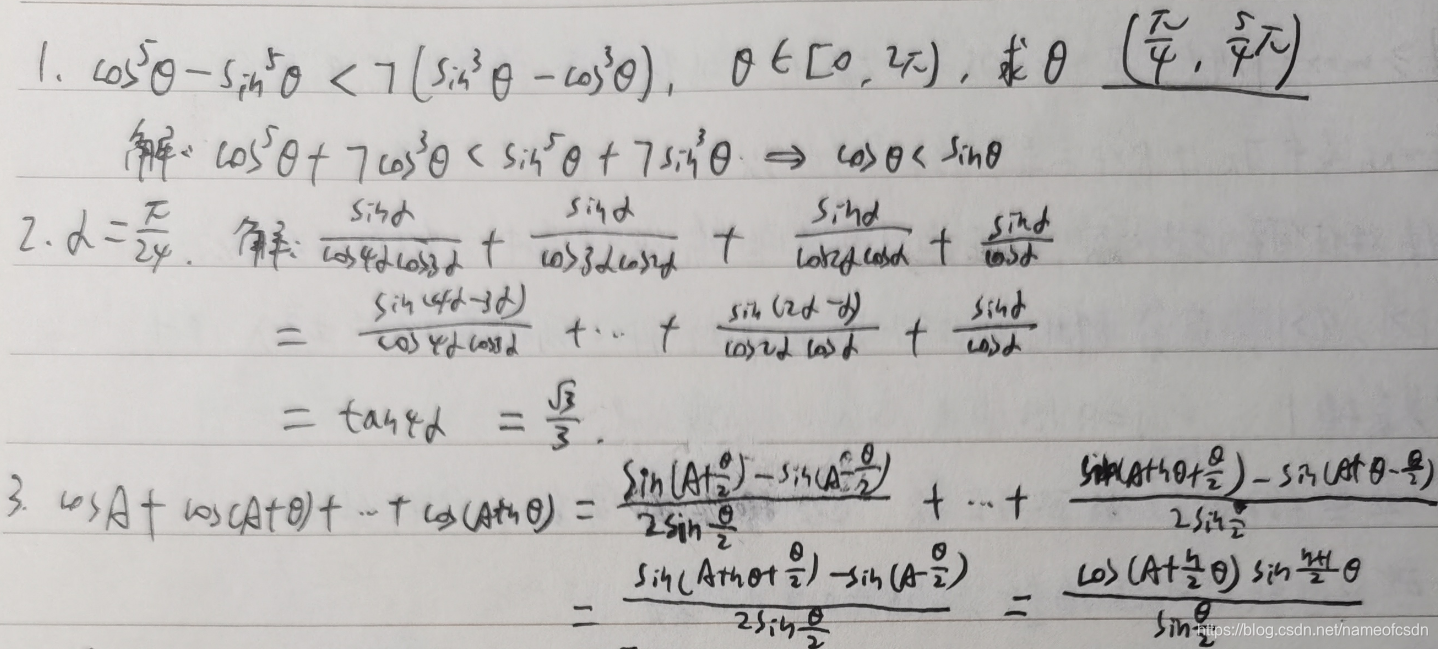 1. cos⁵θ - sin⁵θ < 7(sin³θ - cos³θ), θ∈[0, 2π), 求θ (π/4, 5/4π)
解: cos⁵θ + 7cos³θ < sin⁵θ + 7sin³θ ⇒ cosθ < sinθ
2. α = π/24. 解: sinα/(cos4αcos3α) + sinα/(cos3αcos2α) + sinα/(cos2αcosα) + sinα/cosα
= sin(4α-3α)/(cos4αcos3α) + ... + sin(2α-α)/(cos2αcosα) + sinα/cosα
= tan4α = √3/3.
3. cosA + cos(A+θ) + ... + cos(A+nθ) = (sin(A+θ/2) - sin(A-θ/2))/(2sin θ/2) + ... + (sin(A+nθ+θ/2) - sin(A+θ-θ/2))/(2sin θ/2)
= (sin(A+nθ+θ/2) - sin(A-θ/2))/(2sin θ/2) = (cos(A+n/2 θ) sin (n+1)/2 θ)/(sin θ/2)
https://blog.csdn.net/nameofcsdn